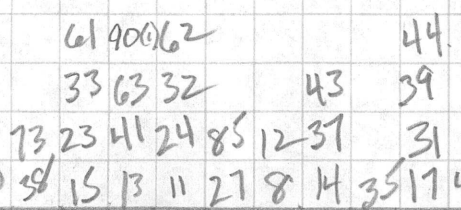 61 90(1) 62 44.
33 63 32 43 39
73 23 41 24 85 12 37 31
38 15 13 11 27 8 14 35 17